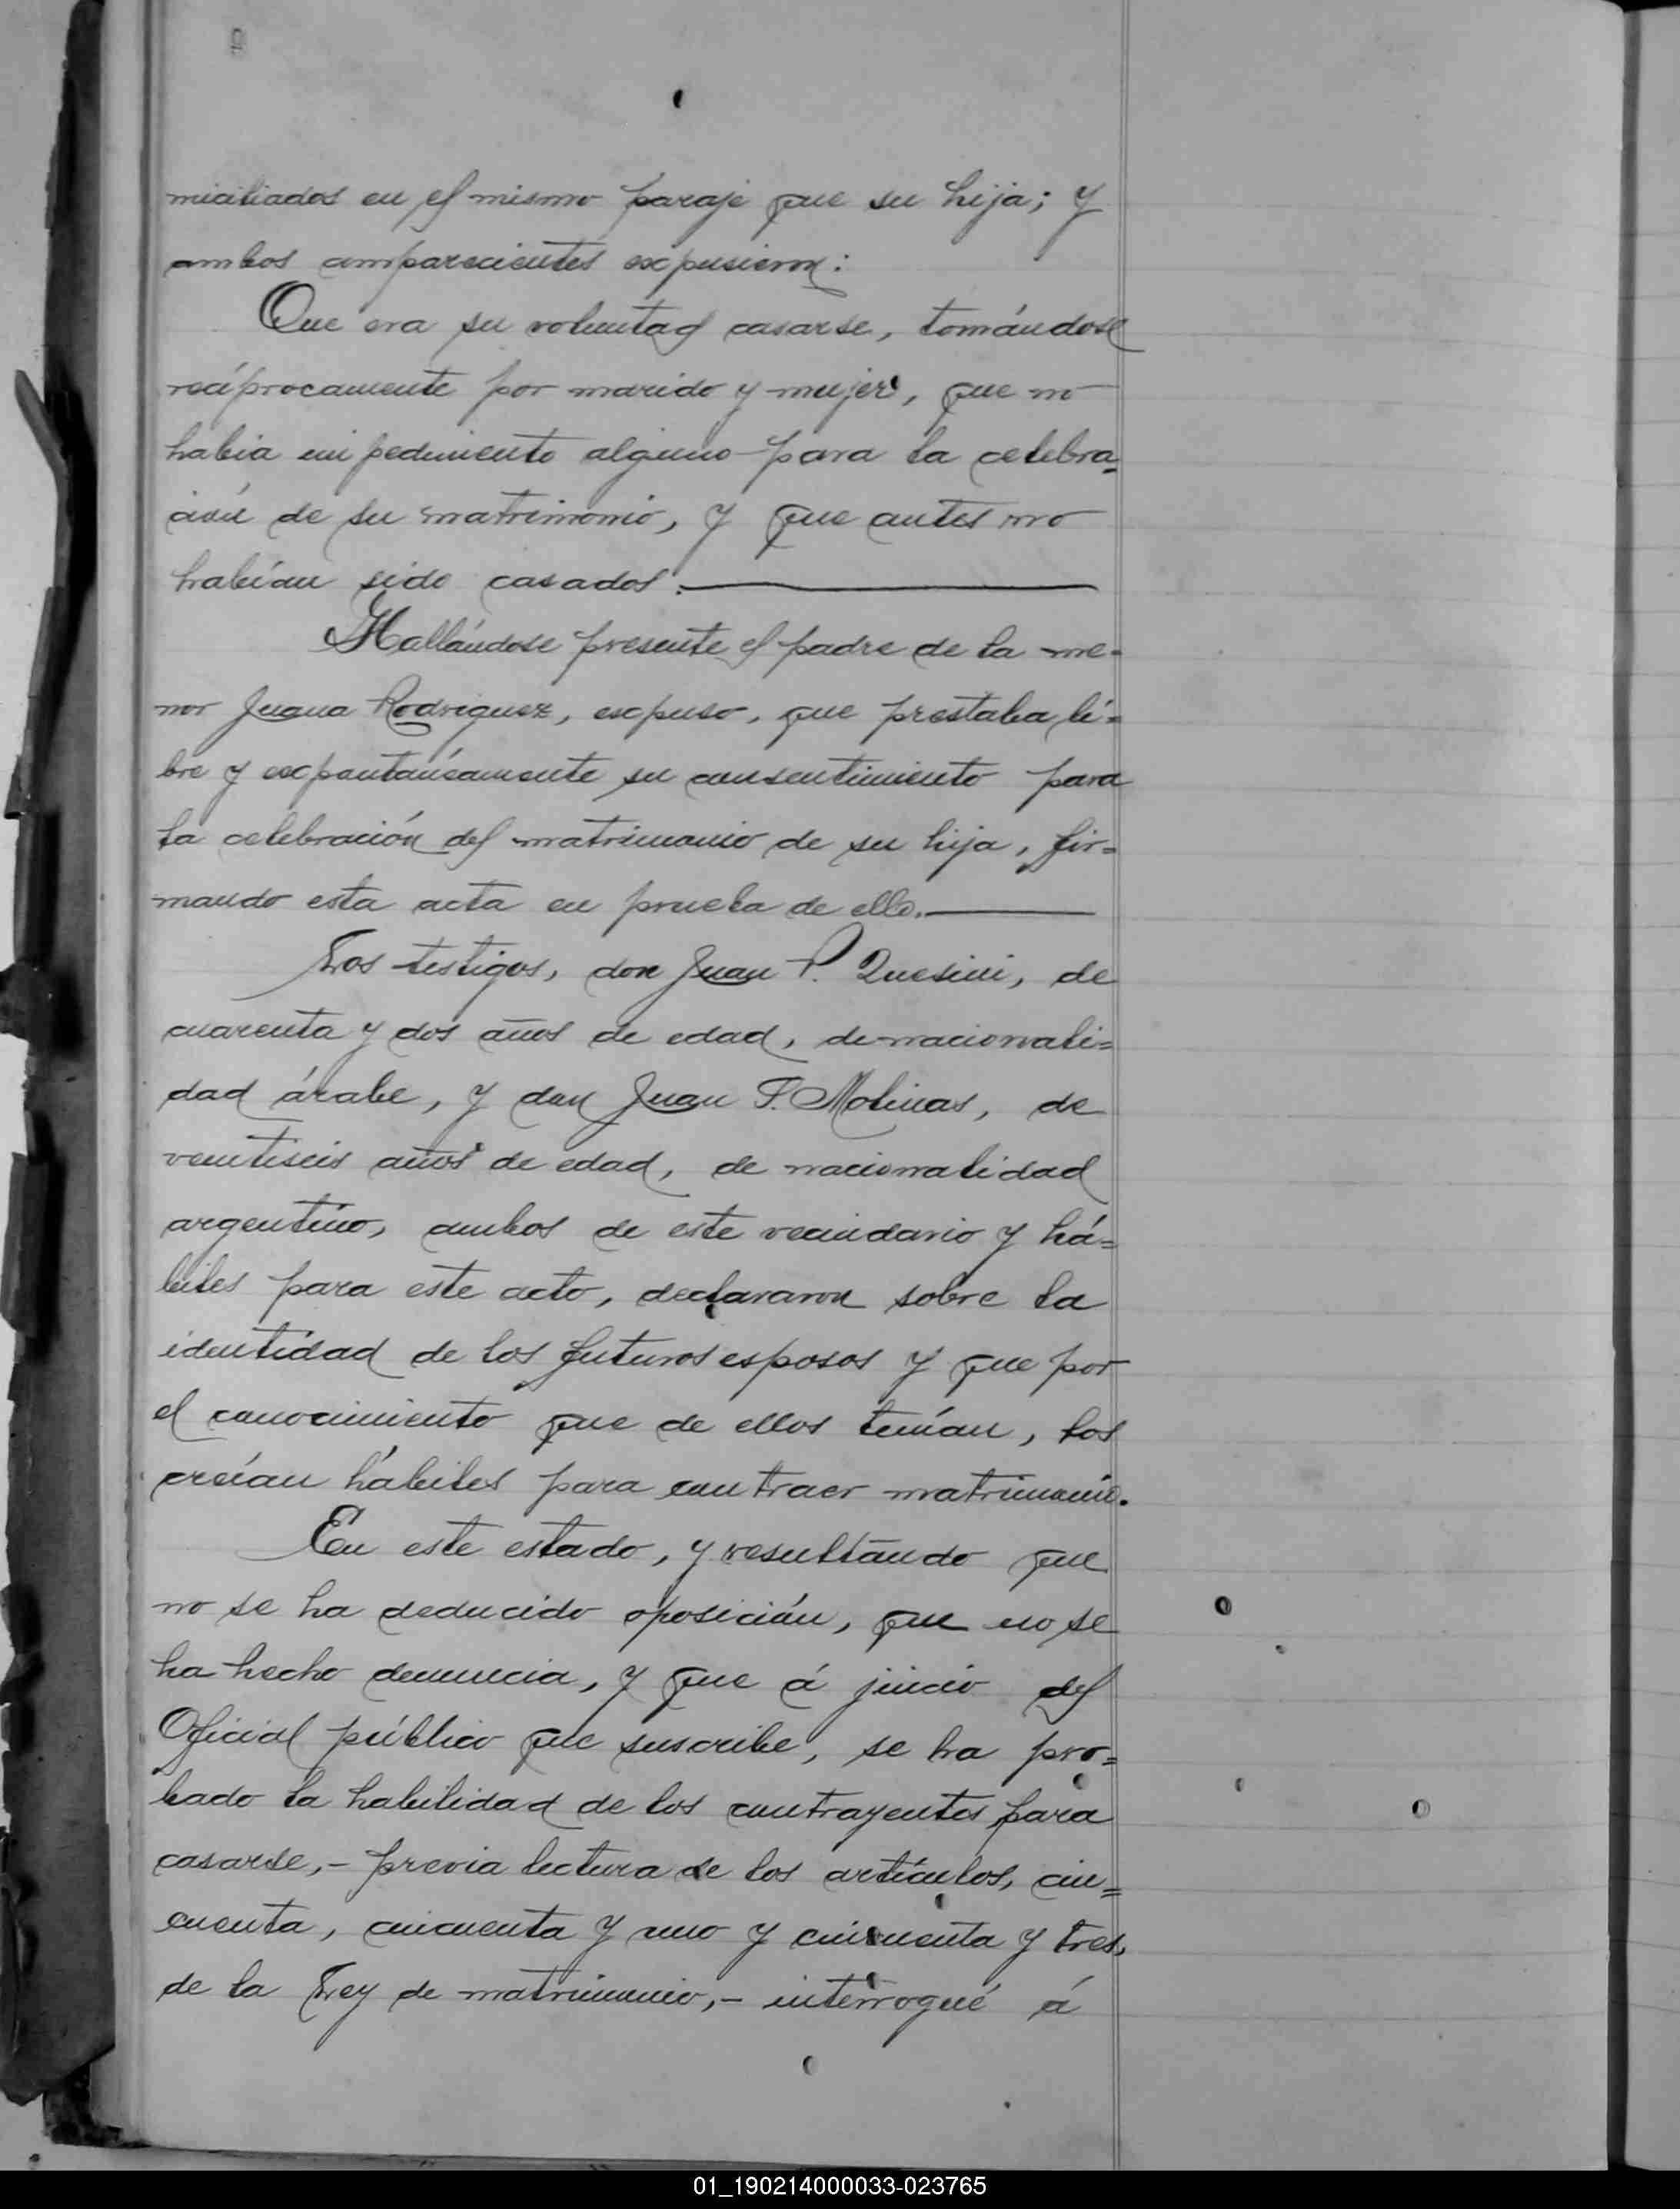 miciliados en el mismo paraje que su hija; y
ambos comparecientes expusieron:
Que era su voluntad casarse, tomándose
recíprocamente por marido y mujer, que no
habia impedimento alguno para la celebra=
ción de su matrimonio, y que antes no
habían sido casados.
Hallándose presente el padre de la me=
nor Juana Rodriguez, expuso, que prestaba li=
bre y expontanéamente su consentimiento para
la celebración del matrimonio de su hija, fir=
mando esta acta en prueba de ello.
Los testigos, don Juan P. Quesini, de
cuarenta y dos años de edad, de nacionali=
dad árabe, y don Juan F. Molinas, de
veintiseis años de edad, de nacionalidad
argentino, ambos de este vecindario y há=
biles para este acto, declararon sobre la
identidad de los futuros esposos y que por
el conocimiento que de ellos tenían, los
creían hábiles para contraer matrimonio.
En este estado, y resultando que
no se ha deducido oposición, que no se
ha hecho denuncia, y que á juicio del
Oficial público que suscribe, se ha pro=
bado la habilidad de los contrayentes para
casarse,- previa lectura de los artículos, cin=
cuenta, cincuenta y uno y cincuenta y tres,
de la Ley de matrimonio,- interrogué á
01_190214000033-023765